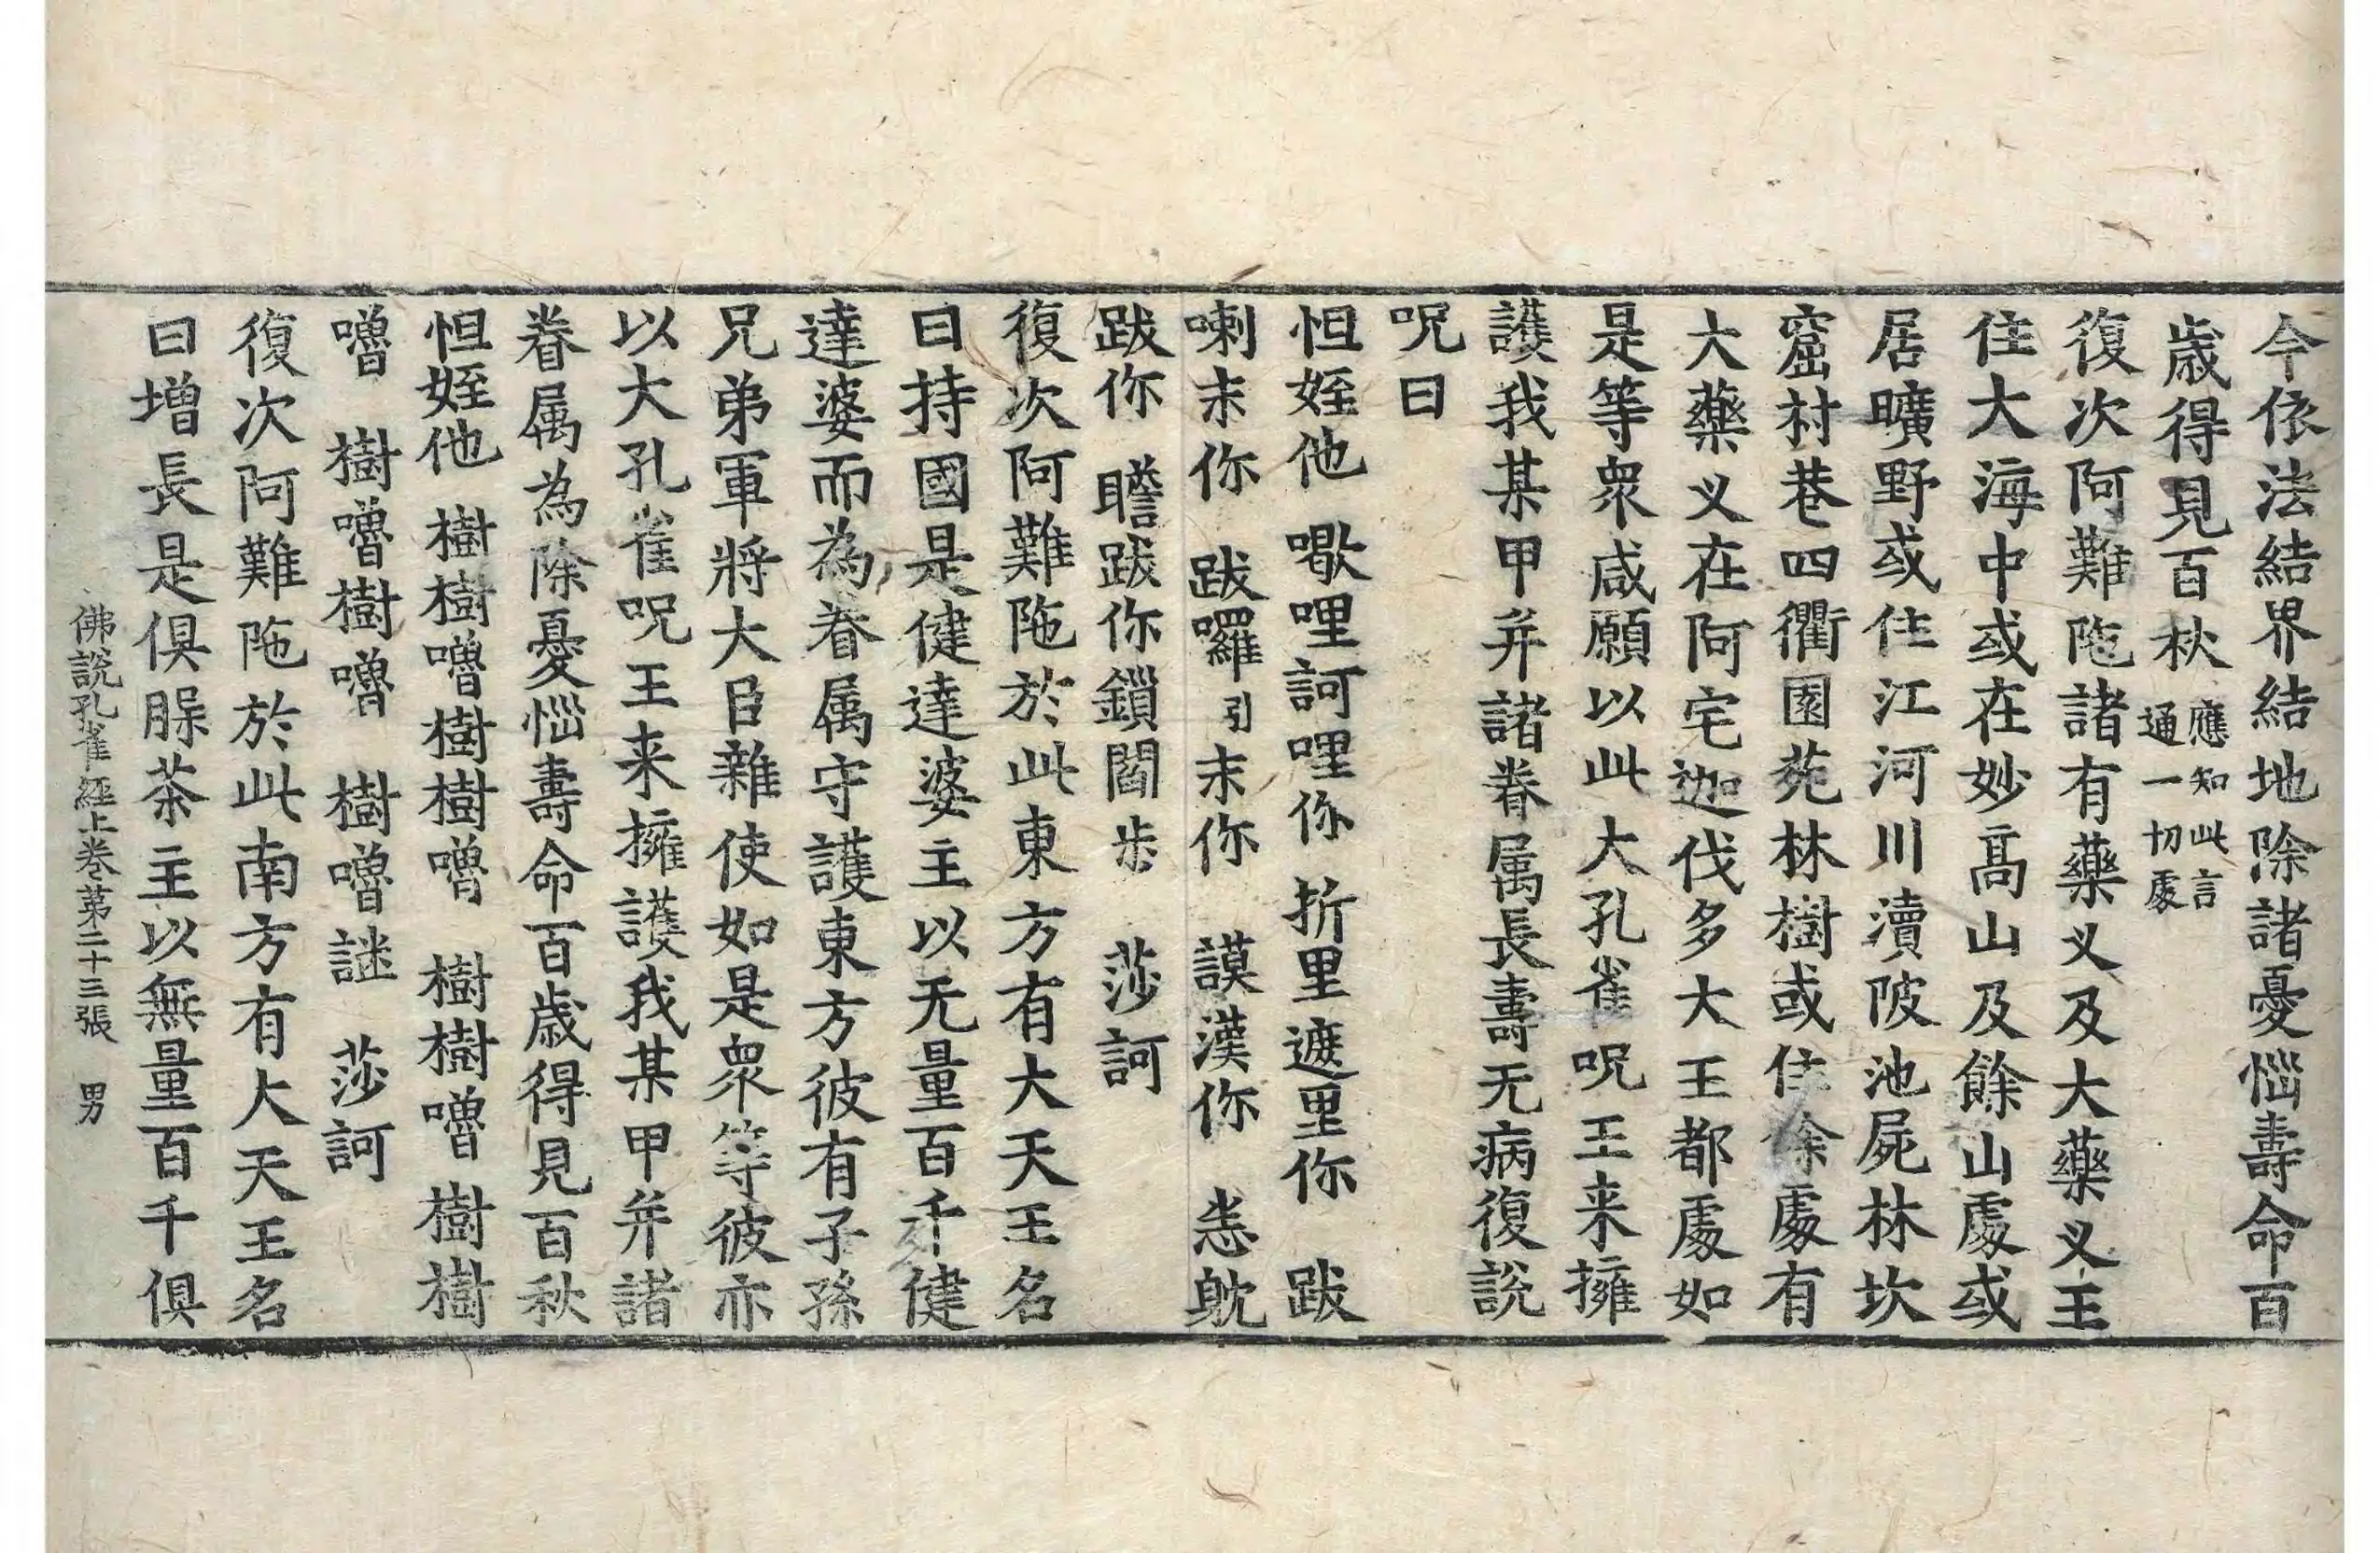 今依法結界結地除諸憂惱壽命百
歲得見百秋應知此言通一切處
復次阿難陁諸有藥义及大藥义王
住大海中或在妙高山及餘山處或
居曠野或住江河川瀆陂池屍林坎
窟村巷四衢園苑林樹或住餘處有
大藥义在阿宅迦伐多大王都處如
是等衆咸願以此大孔雀呪王来擁
護我某甲并諸眷属長壽无病復說
呪曰
怛姪他 㘑哩訶哩你 折里遮里你 跋
喇末你 跋囉引末你 謨漢你 悉躭
跋你 瞻跋你鎖閻步 莎訶
復次阿難陁於此東方有大天王名
曰持國是健達婆主以无量百千健
達婆而為眷属守護東方彼有子孫
兄弟軍將大臣雜使如是衆等彼亦
以大孔雀呪王来擁護我某甲并諸
眷属為除憂惱壽命百歲得見百秋
怛姪他 樹樹嚕樹樹嚕 樹樹嚕 樹樹
嚕 樹嚕樹嚕 樹嚕謎 莎訶
復次阿難陁於此南方有大天王名
曰增長是俱脲茶主以無量百千俱
佛說孔雀經上卷第二十三張 男